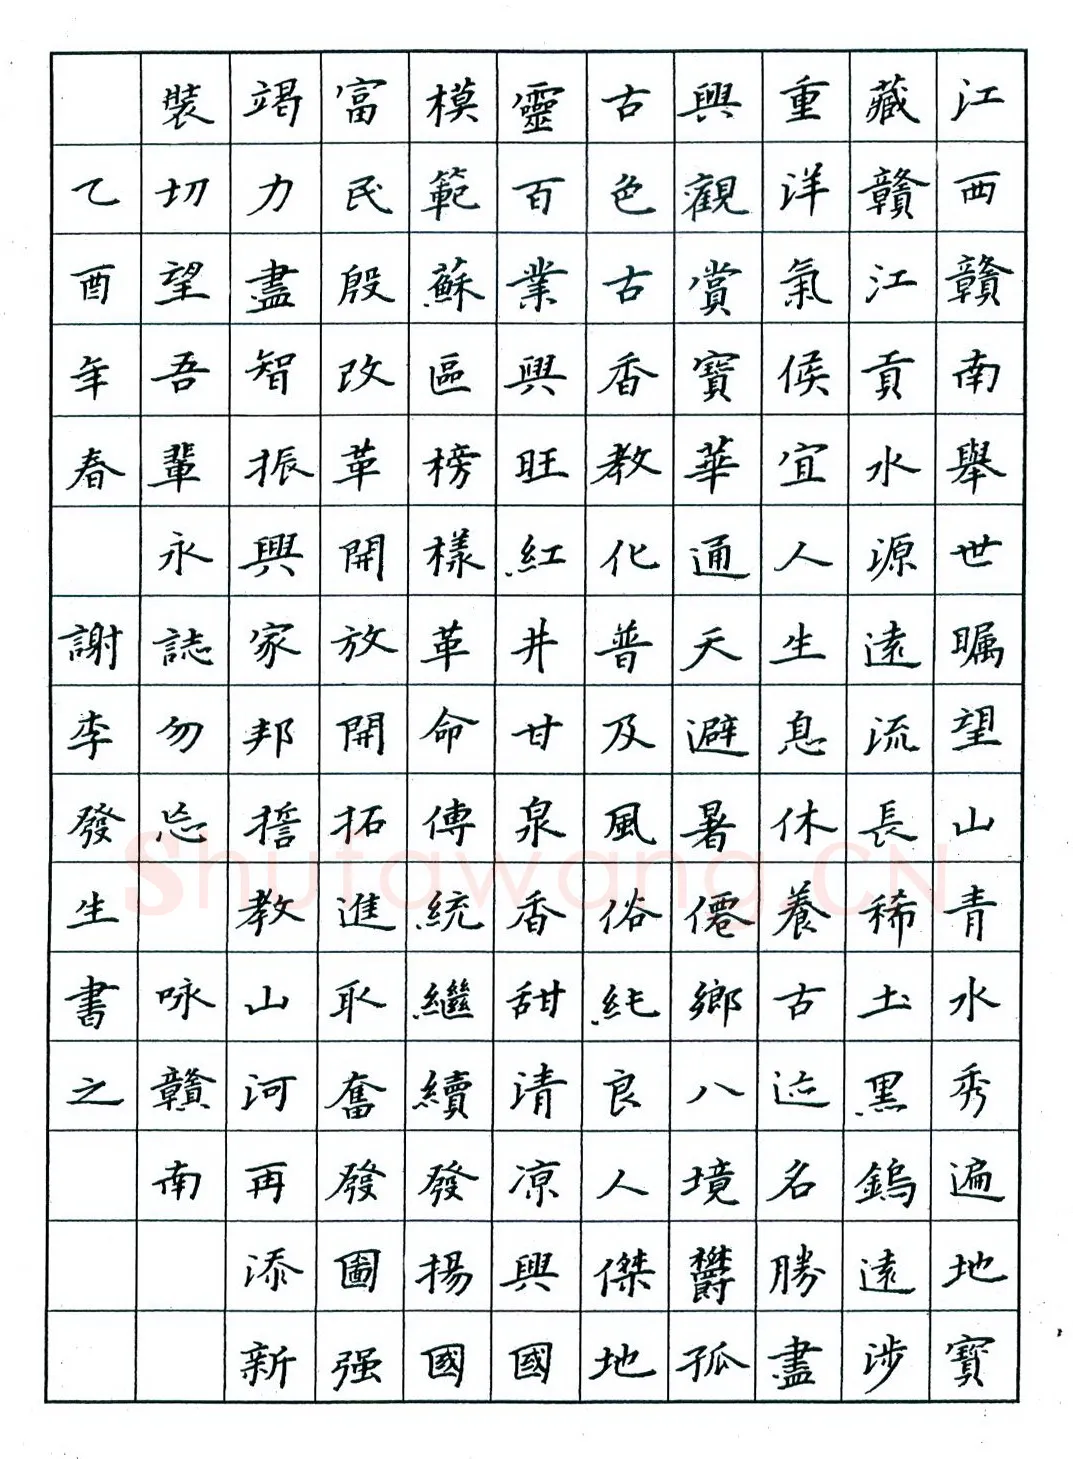 江西贛南舉世瞩望山青水秀遍地寶
藏贛江貢水源遠流長稀土黑鎢遠涉
重洋氣候宜人生息休養古迹名勝盡
興觀賞寶華通天避暑僊鄉八境鬱孤
古色古香教化普及風俗純良人傑地
靈百業興旺紅井甘泉香甜清凉興國
模範蘇區榜樣革命傳統繼續發揚國
富民殷改革開放開拓進取奮發圖强
竭力盡智振興家邦誓教山河再添新
裝切望吾輩永誌勿忘 咏贛南
乙酉年春 謝李發生書之
Shufawang.CN